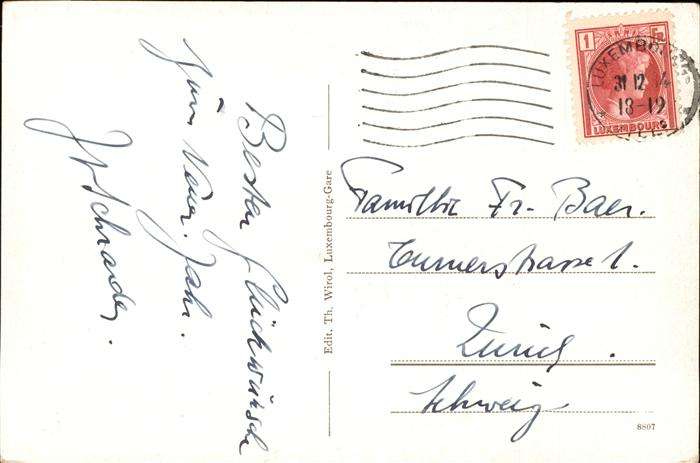 Besten Glückwunsch
zum Neuen Jahr.
Schrader.
Edit. Th. Wirol, Luxembourg-Gare
1 Fr
LUXEMBOURG
LUXEMBOURG
31 12
18-19
Familie Fr. Baer.
Turnerstrasse 1.
Zürich.
Schweiz
8807